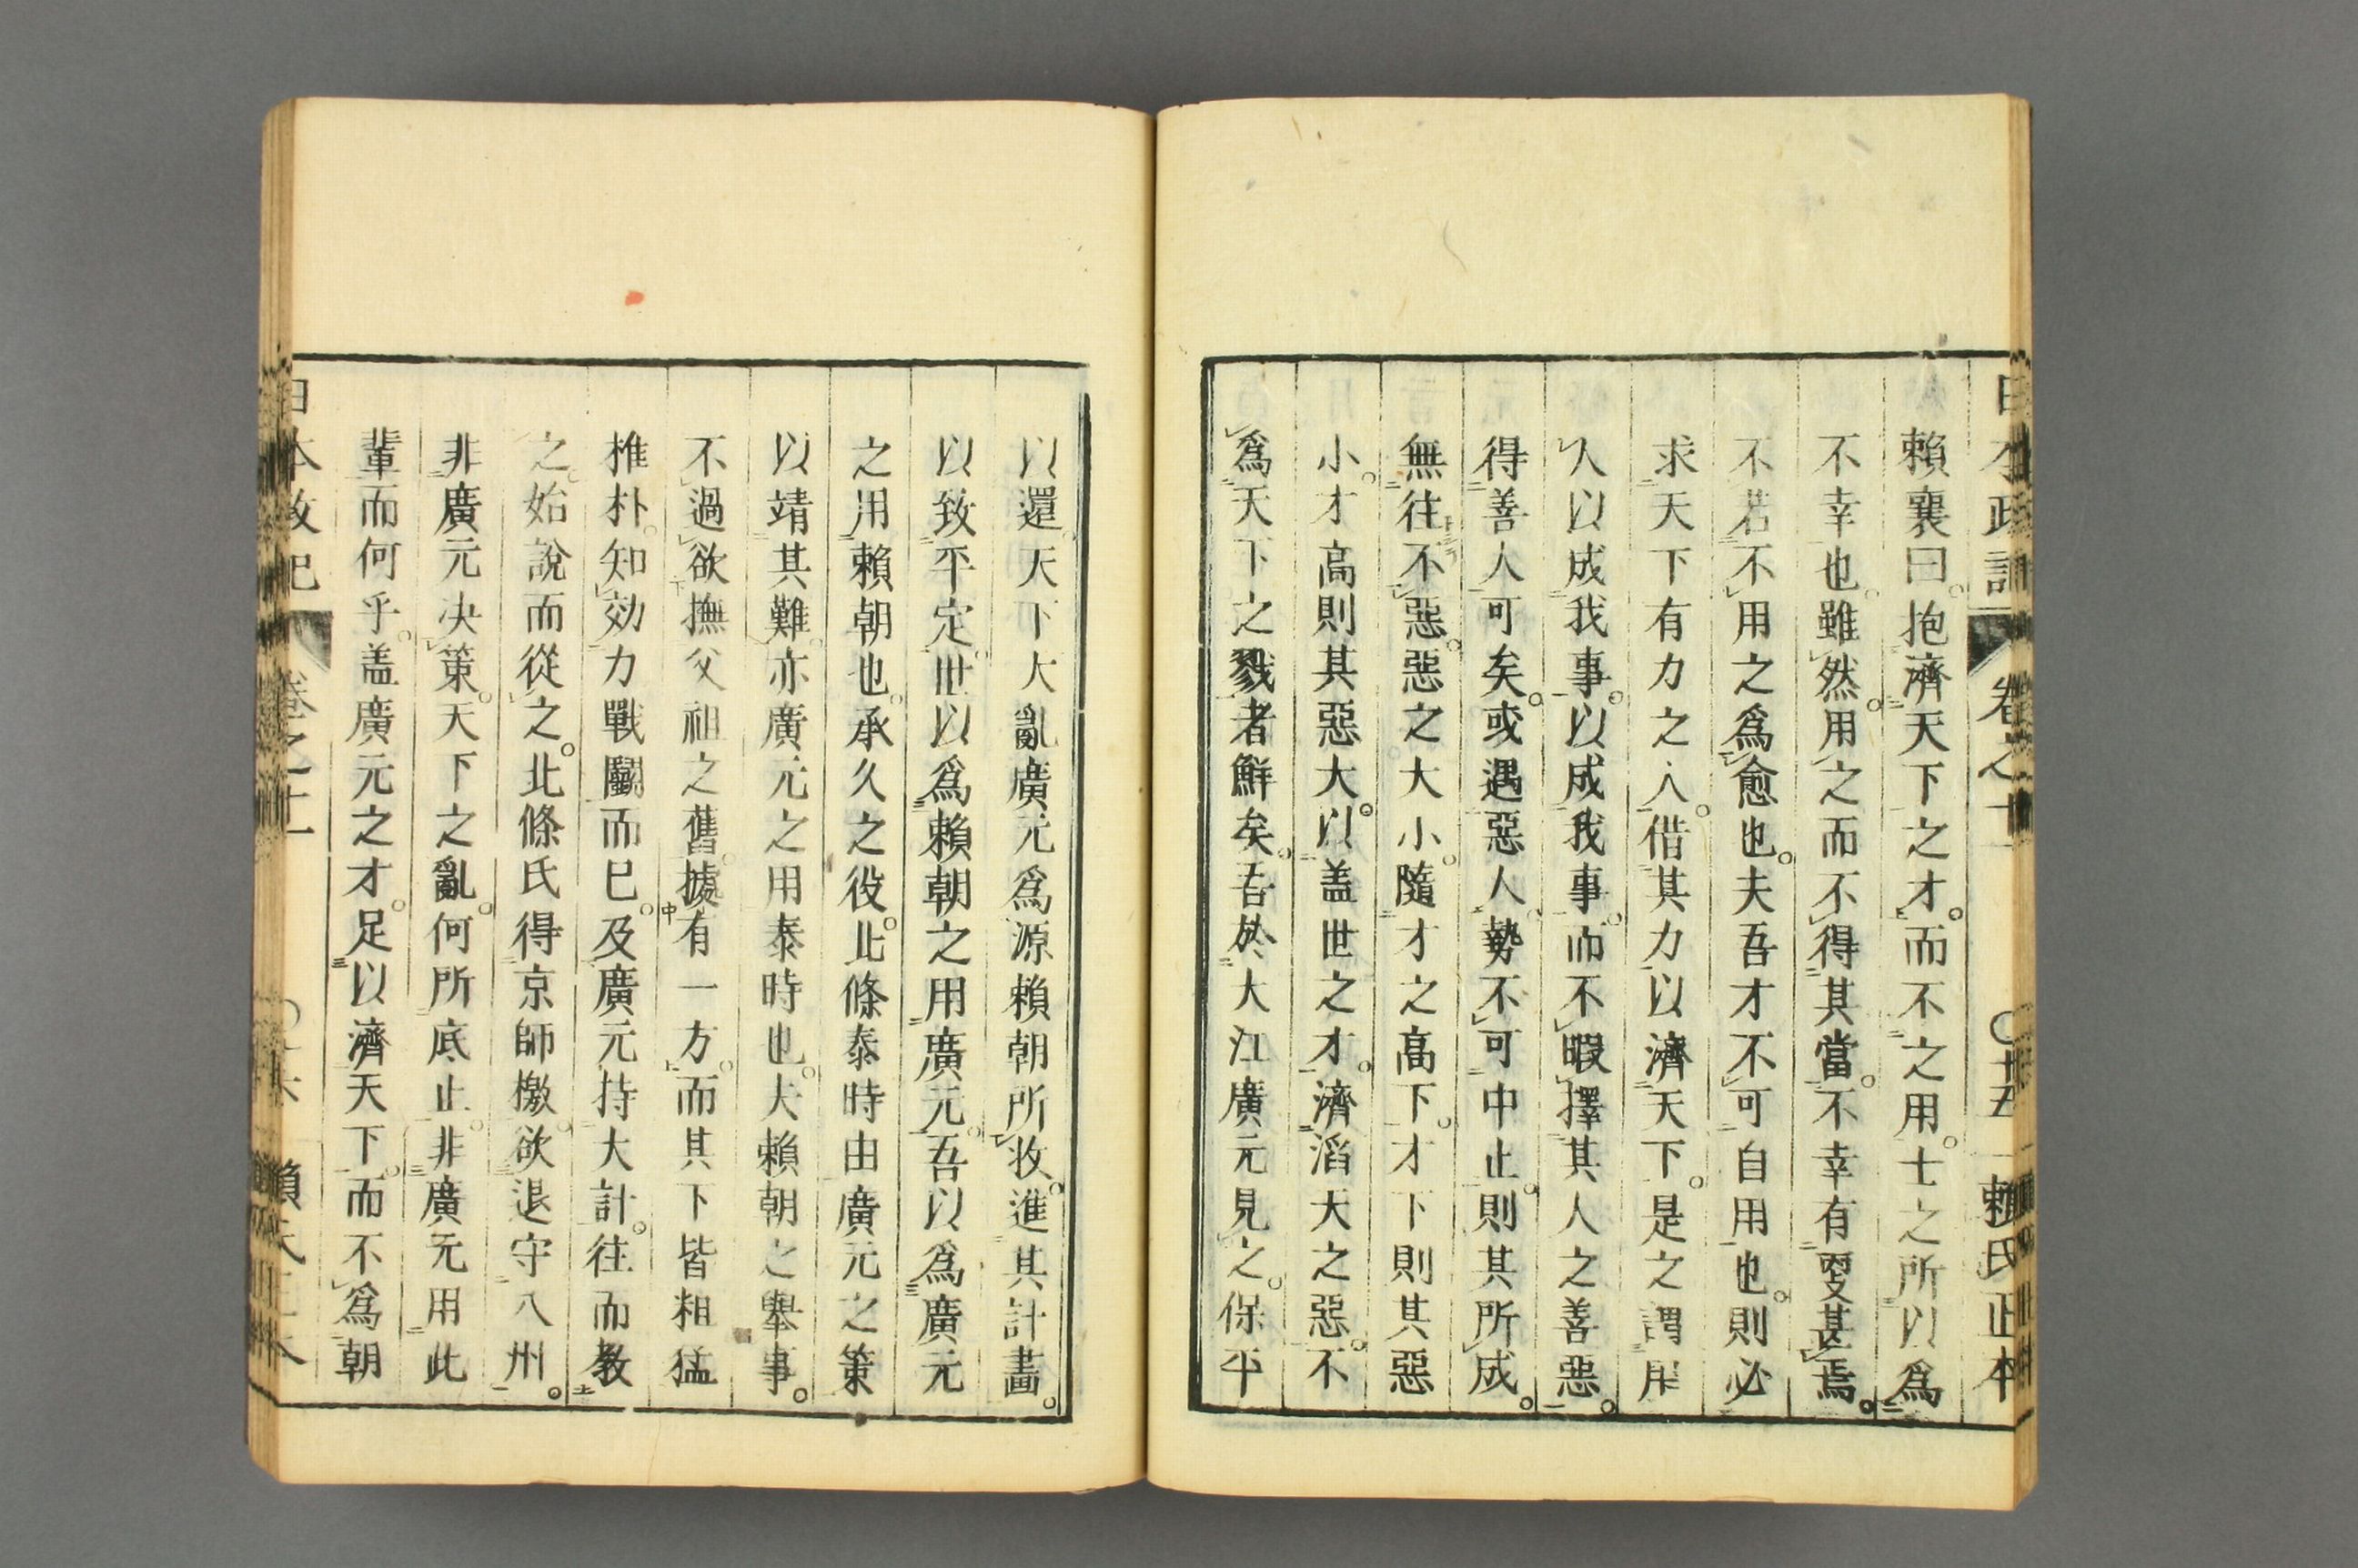 日本政記 卷之十一 〇十五 賴氏正本
賴襄曰。抱濟天下之才。而不之用。士之所以爲
不幸也。雖然。用之而不得其當。不幸有更甚焉。
不若不用之爲愈也。夫吾才不可自用也。則必
求天下有力之人。借其力以濟天下。是之謂用
人以成我事。以成我事。而不暇擇其人之善惡。
得善人可矣。或遇惡人。勢不可中止。則其所成。
無往不惡。惡之大小。隨才之高下。才下則其惡
小。才高則其惡大。以盖世之才。濟滔天之惡。不
爲天下之戮者鮮矣。吾於大江廣元見之。保平
以還天下大亂廣元爲源賴朝所收。進其計畫。
以致平定。世以爲賴朝之用廣元。吾以爲廣元
之用賴朝也。承久之役。北條泰時由廣元之策
以靖其難。亦廣元之用泰時也。夫賴朝之舉事。
不過欲撫父祖之舊據有一方。而其下皆粗猛
椎朴。知効力戰鬭而巳。及廣元持大計。往而教
之。始說而從之。北條氏得京師檄。欲退守八州。
非廣元决策。天下之亂。何所底止。非廣元用此
輩而何乎。盖廣元之才。足以濟天下。而不爲朝
日本政記 卷之十一 〇十六 賴氏正本